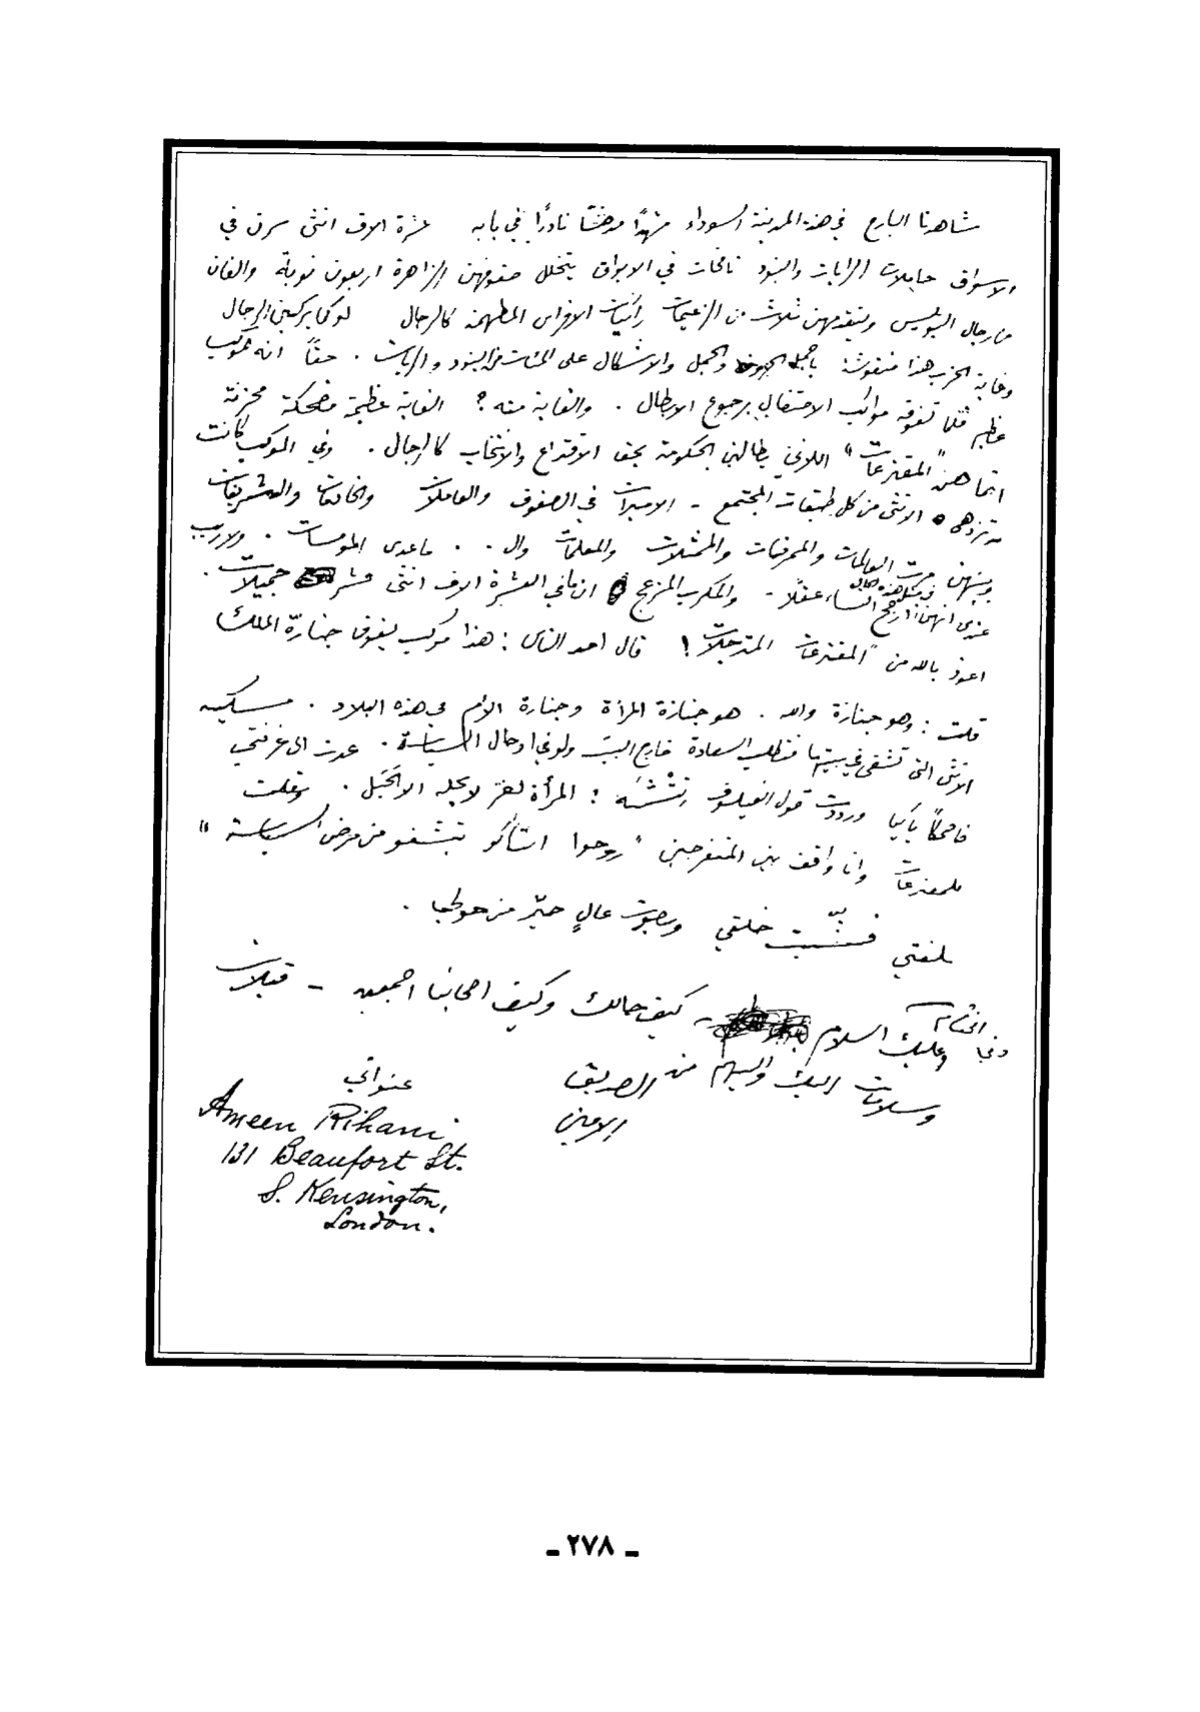 شاهدنا البارح في هذه المدينة السوداء مشهدًا مدهشًا نادرًا في بابه عشرة الاف انثى سرن في
الاسواق حاملات الرايات والبنود نافخات في الابواق يتخلل صفوفهن الزاهرة اربعون نوبة والفان
من رجال البوليس ويتقدمهن ثلاث من الزعيمات راكبات الافراس المطهمة كالرجال لو كما يركبن الرجال
وغاية الحزب هذا منقوشة والجمل والاشكال على المئات من البنود والرايات . حقًا انه لموكب
عظيم قلما تفوقه مواكب الاحتفال برجوع الابطال . والغاية منه ؟ الغاية عظيمة مضحكة محزنة
انما هن "المقترعات" اللاتي يطالبن الحكومة بحق الاقتراع والانتخاب كالرجال . وفي الموكب كانت
الانثى من كل طبقات المجتمع - الاميرات في الصفوف والعاملات والخادمات والشريفات
وبينهن العالمات والممرضات والممثلات والمعلمات وال . . ماعدى المومسات . ولاريب
عندي انهن في مثل هذه ارجح النساء عقلًا - والمكرب المزعج ان ما في العشرة الاف انثى عشر جميلات .
اعوذ بالله من "المقترعات المترجلات ! قال احد الناس : هذا موكب يفوق جنازة الملك
قلت : وهو جنازة والله . هو جنازة المرأة وجنازة الأم في هذه البلاد . مسكينه
الانثى التي تشقى في بيتها فتطلب السعادة خارج البيت ولو في اوحال السياسة . عدت الى غرفتي
ضاحكًا باكيا ورددت قول الفيلسوف نتشه : المرأة لغز لا يحله الا الحَبَل . وقلت
للمقترعات وانا واقف بين المتفرجين "روحوا بتشفو من مرض السياسة"
بلغتي خلقي وبصوت عالٍ حيّر من حولي .
وفي الختام وعليك السلام - كيف حالك وكيف احبابنا اجمعين - قبلات
وسلامات اليك واليهم من الصديق
الامين
عنواني
Ameen Rihani
131 Beaufort St.
S. Kensington,
London.
- ٢٧٨ -